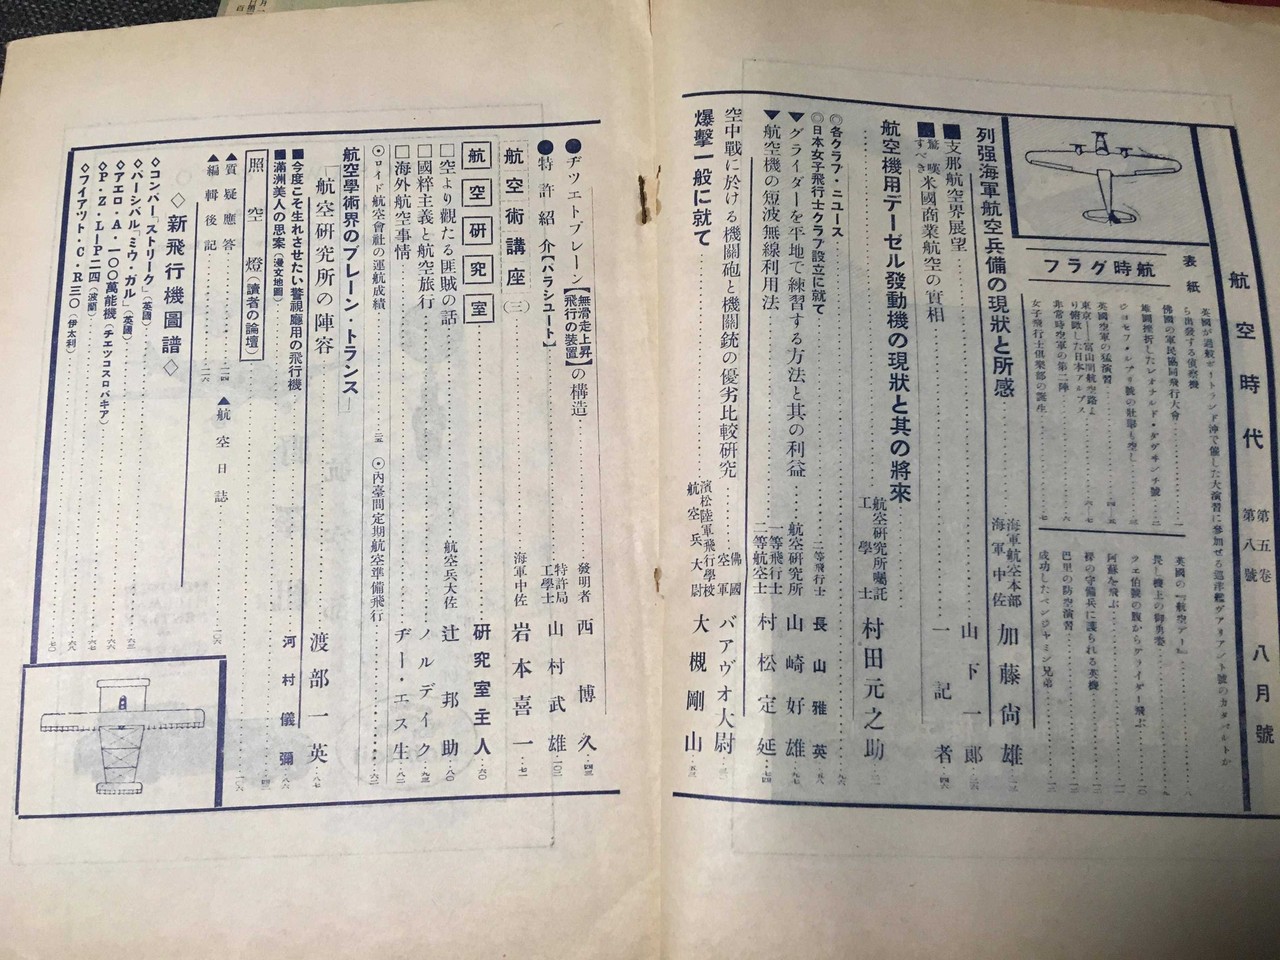 航空時代 第五卷 第八號 八月號
表紙
英國が過般ポートランド沖で催した大演習に參加せる巡洋艦ヴアリアント號のカタパルトから出發する偵察機
航時グラフ
佛國の軍民協同飛行大會……一
雄圖挫折したレオナルド・ダヴヰンチ號……二
ジヨセフ・レブリ號の壯擧も空し……三
英國空軍の猛演習……四—五
東京—富山間航空路より俯瞰した日本アルプス……六—七
非常時空軍の第二陣……六
女子飛行士倶樂部の誕生……七
英國の『航空デー』……八
畏し機上の御勇姿……九
ツエ伯號の腹からグライダー飛ぶ……一〇
阿蘇を飛ぶ……一一
巴里の防空演習……一二
成功したベンジヤミン兄弟……一三
列强海軍航空兵備の現狀と所感……海軍航空本部 海軍中佐 加藤尙雄
■支那航空界展望……山下一郎
■驚嘆すべき米國商業航空の實相……一記者…四六
航空機用デーゼル發動機の現狀と其の將來……航空研究所囑託 工學士 村田元之助
◎各クラブ・ニユース
◎日本女子飛行士クラブ設立に就て……二等飛行士 長山雅英
▼グライダーを平地で練習する方法と其の利益……航空研究所 山崎好雄…九七
▼航空機の短波無線利用法……一等飛行士 二等航空士 村松定延…七四
空中戰に於ける機關砲と機關銃の優劣比較研究……佛國空軍 バアヴオ大尉
爆擊一般に就て……濱松陸軍飛行學校 航空兵大尉 大槻剛山…五三
●ヂツエトプレーン【無滑走上昇飛行の裝置】の構造……發明者 西博久…四三
●特許紹介【パラシュート】……特許局 工學士 山村武雄…一〇二
航空術講座(三)……海軍中佐 岩本喜一…七一
航空研究室……研究室主人…六〇
□空より觀たる匪賊の話……航空兵大佐 辻邦助…八〇
□國粹主義と航空旅行……ノルデイク…九三
□海外航空事情……ヂー・エス生…八二
⊙ロイド航空會社の運航成績……二五 ⊙內臺間定期航空準備飛行……六二
航空學術界のブレーン・トランス―
「航空研究所の陣容……渡部一英…八七
■今度こそ生れさせたい警視廳用の飛行機
■滿洲美人の思案(漫文地圖)……河村儀彌…八六
照空燈(讀者の論壇)
▲質疑應答……一二四 ▲航空日誌……一〇六
▲編輯後記……一二六
◇新飛行機圖譜◇
◇コンバー「ストリーク」(英國)
◇パーシバル「ミウ・ガル」(英國)
◇アエロ・A・一〇〇萬能機(チエツコスロバキア)
◇P・Z・L—P二四(波蘭)
◇フイアツト・C・R三〇(伊太利)